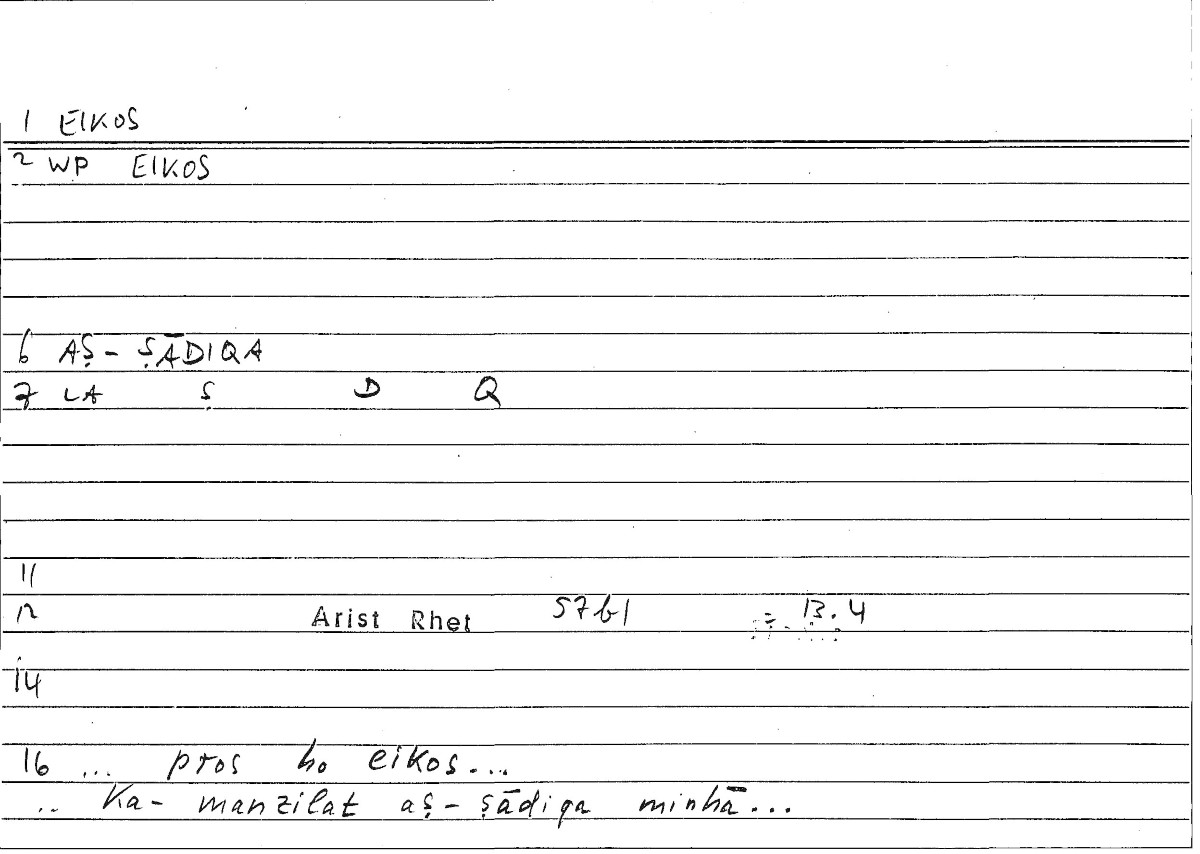 1 EIKOS
2 WP EIKOS
6 AṢ-ṢĀDIQA
7 LA Ṣ D Q
11
12 Arist Rhet 57b1 = 13.4
14
16 ... pros ho eikos...
.. Ka-manzilat aṣ-ṣādiqa minhā...